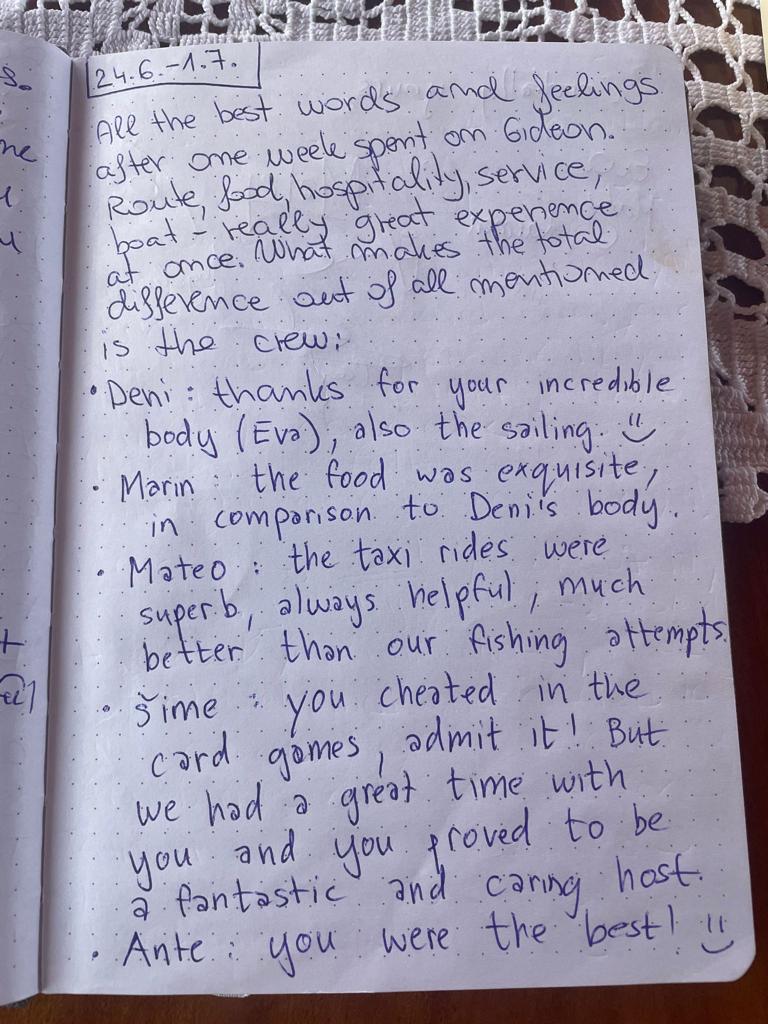 24.6.-1.7.
All the best words and feelings
after one week spent on Gideon.
Route, food, hospitality, service,
boat - really great experience
at once. What makes the total
difference out of all mentioned
is the crew:
• Deni: thanks for your incredible
body (Eva), also the sailing. :)
• Marin: the food was exquisite,
in comparison to Deni's body.
• Mateo: the taxi rides were
superb, always helpful, much
better than our fishing attempts.
• Šime: you cheated in the
card games, admit it! But
we had a great time with
you and you proved to be
a fantastic and caring host.
• Ante: you were the best! :)